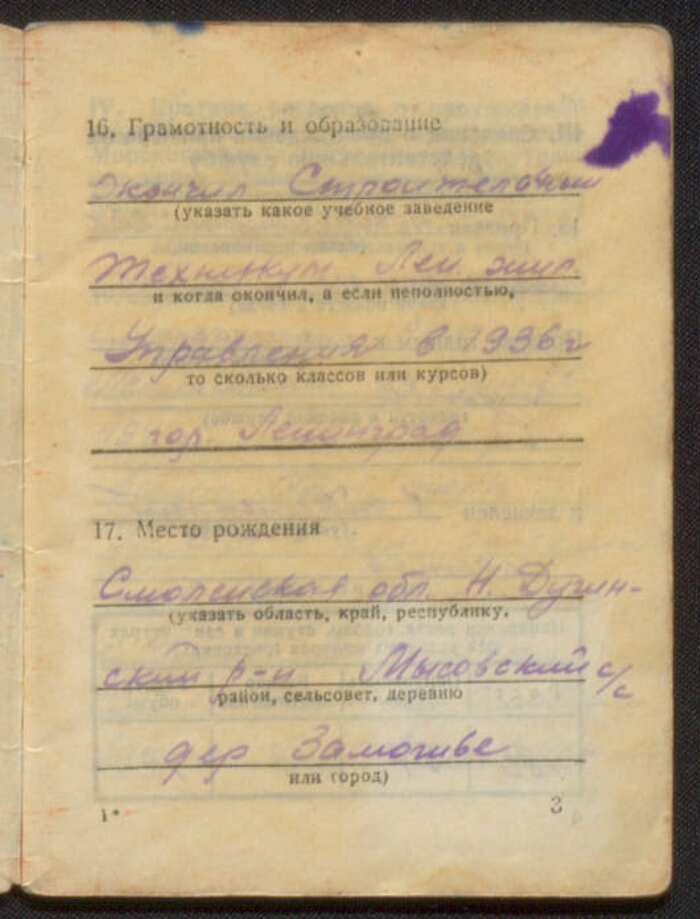 16. Грамотность и образование
окончил Строительный
(указать какое учебное заведение
Техникум Лен. жил.
и когда окончил, а если неполностью,
Управления в 1936 г
то сколько классов или курсов)
гор. Ленинград
17. Место рождения
Смоленская обл. Н. Дугин-
(указать область, край, республику,
ский р-н Мысовский с/с
район, сельсовет, деревню
дер
или город)
1*
3